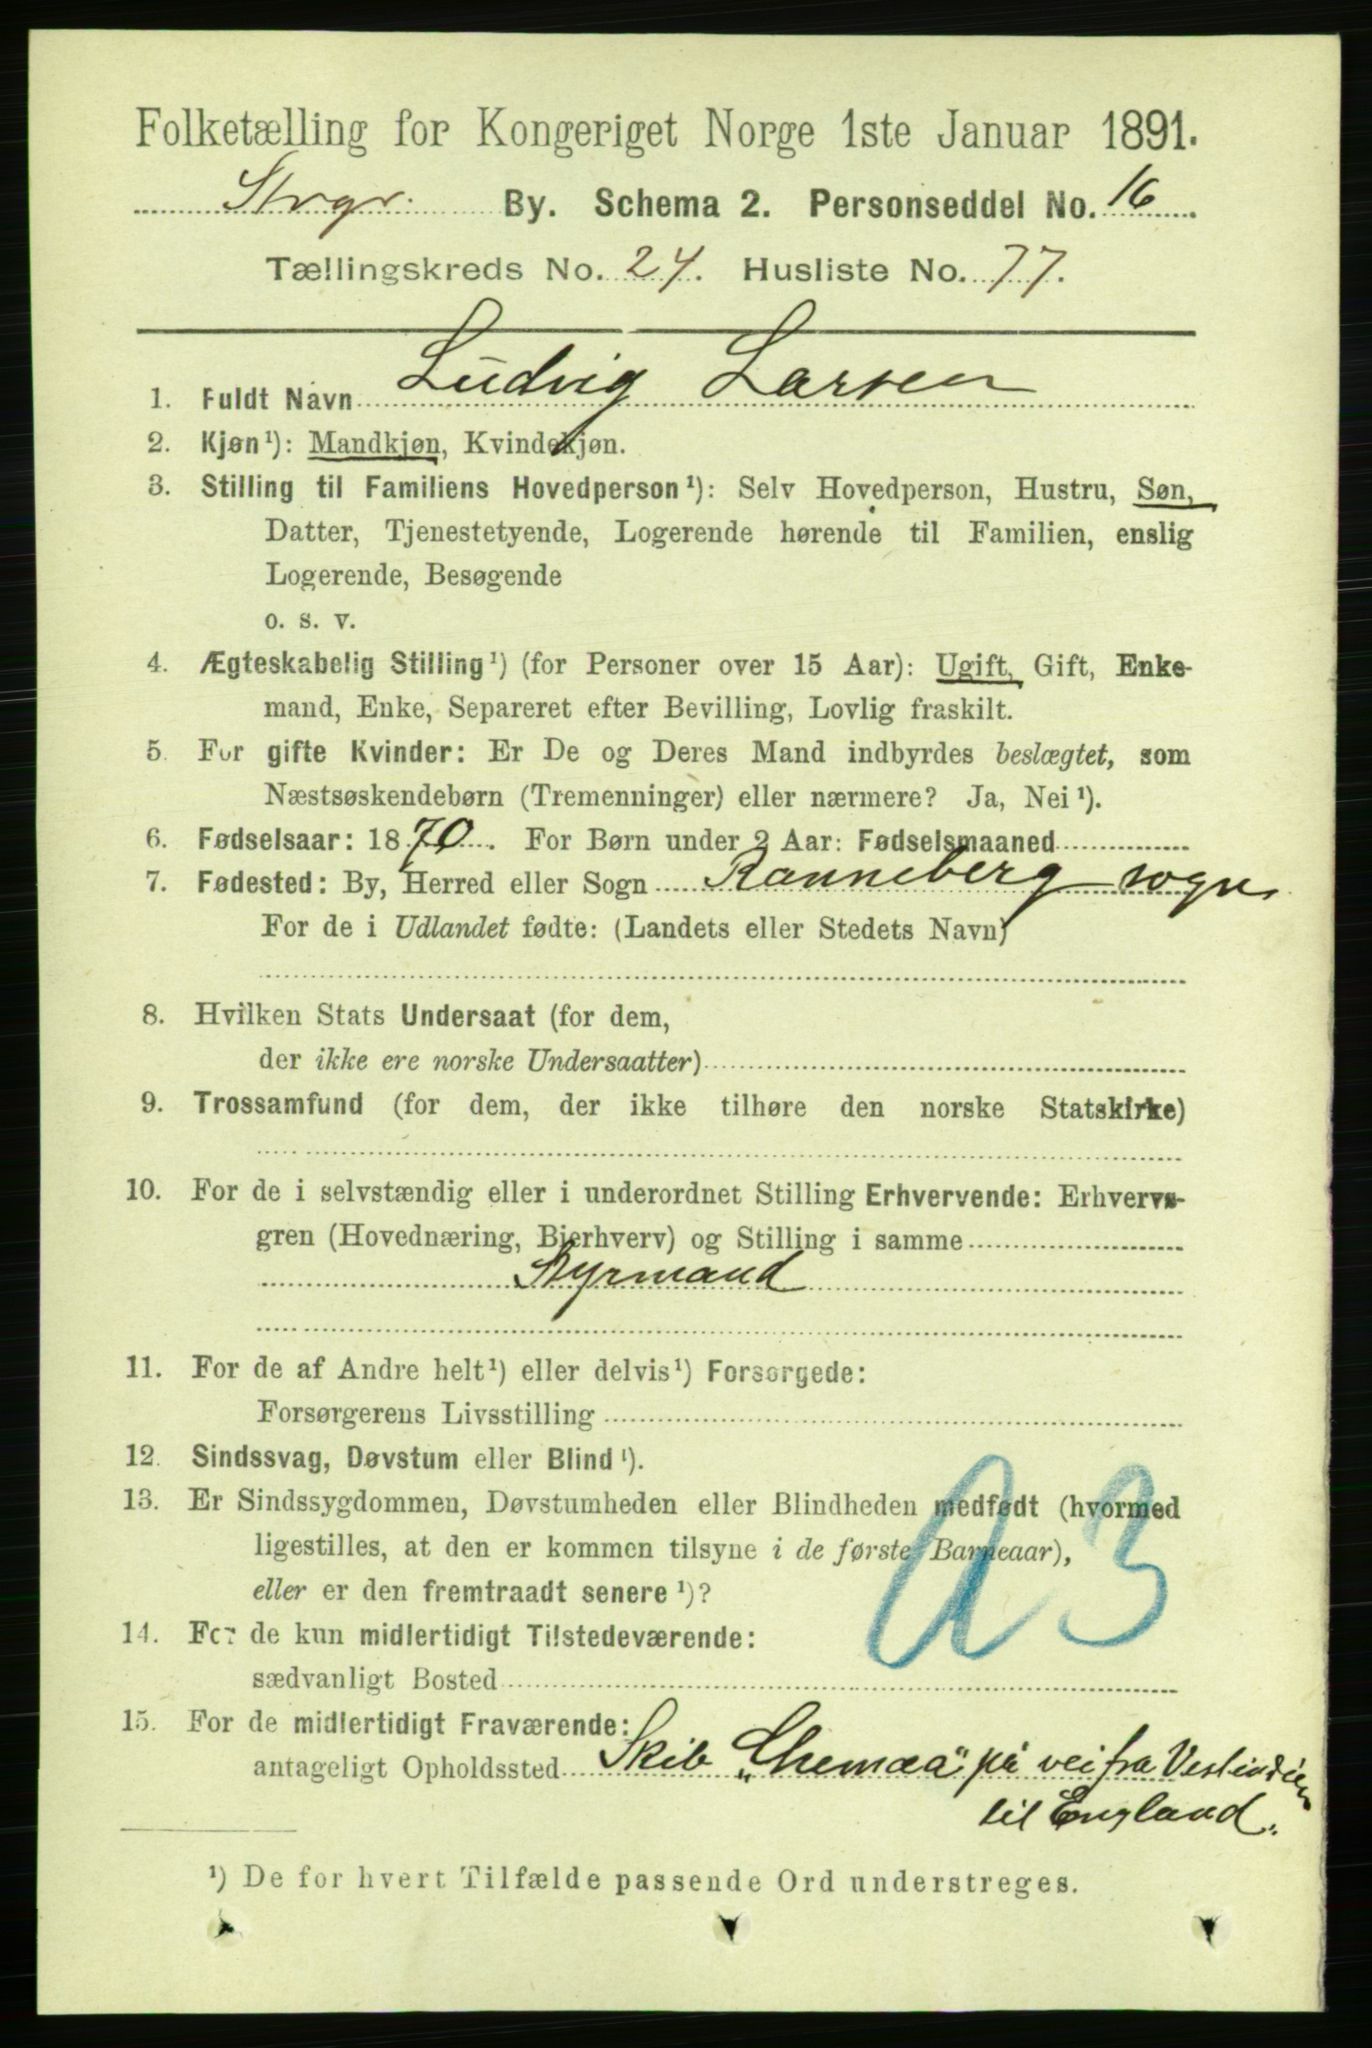 Folketælling for Kongeriget Norge 1ste Januar 1891.
Stvgr. By. Schema 2. Personseddel No. 16.
Tællingskreds No. 24. Husliste No. 77.
1. Fuldt Navn Ludvig Larsen
2. Kjøn¹): Mandkjøn, Kvindekjøn.
3. Stilling til Familiens Hovedperson¹): Selv Hovedperson, Hustru, Søn,
Datter, Tjenestetyende, Logerende hørende til Familien, enslig
Logerende, Besøgende
o. s. v.
4. Ægteskabelig Stilling¹) (for Personer over 15 Aar): Ugift, Gift, Enke-
mand, Enke, Separeret efter Bevilling, Lovlig fraskilt.
5. For gifte Kvinder: Er De og Deres Mand indbyrdes beslægtet, som
Næstsøskendebørn (Tremenninger) eller nærmere? Ja, Nei¹).
6. Fødselsaar: 1870. For Børn under 2 Aar: Fødselsmaaned
7. Fødested: By, Herred eller Sogn Ranneberg sogn
For de i Udlandet fødte: (Landets eller Stedets Navn)
8. Hvilken Stats Undersaat (for dem,
der ikke ere norske Undersaatter)
9. Trossamfund (for dem, der ikke tilhøre den norske Statskirke)
10. For de i selvstændig eller i underordnet Stilling Erhvervende: Erhvervs-
gren (Hovednæring, Bierhverv) og Stilling i samme
Styrmand
11. For de af Andre helt¹) eller delvis¹) Forsørgede:
Forsørgerens Livsstilling
12. Sindssvag, Døvstum eller Blind¹).
13. Er Sindssygdommen, Døvstumheden eller Blindheden medfødt (hvormed
ligestilles, at den er kommen tilsyne i de første Barneaar),
eller er den fremtraadt senere¹)?
14. For de kun midlertidigt Tilstedeværende:
sædvanligt Bosted
15. For de midlertidigt Fraværende:
antageligt Opholdssted Skib på vei fra Vestindien
til England.
¹) De for hvert Tilfælde passende Ord understreges.